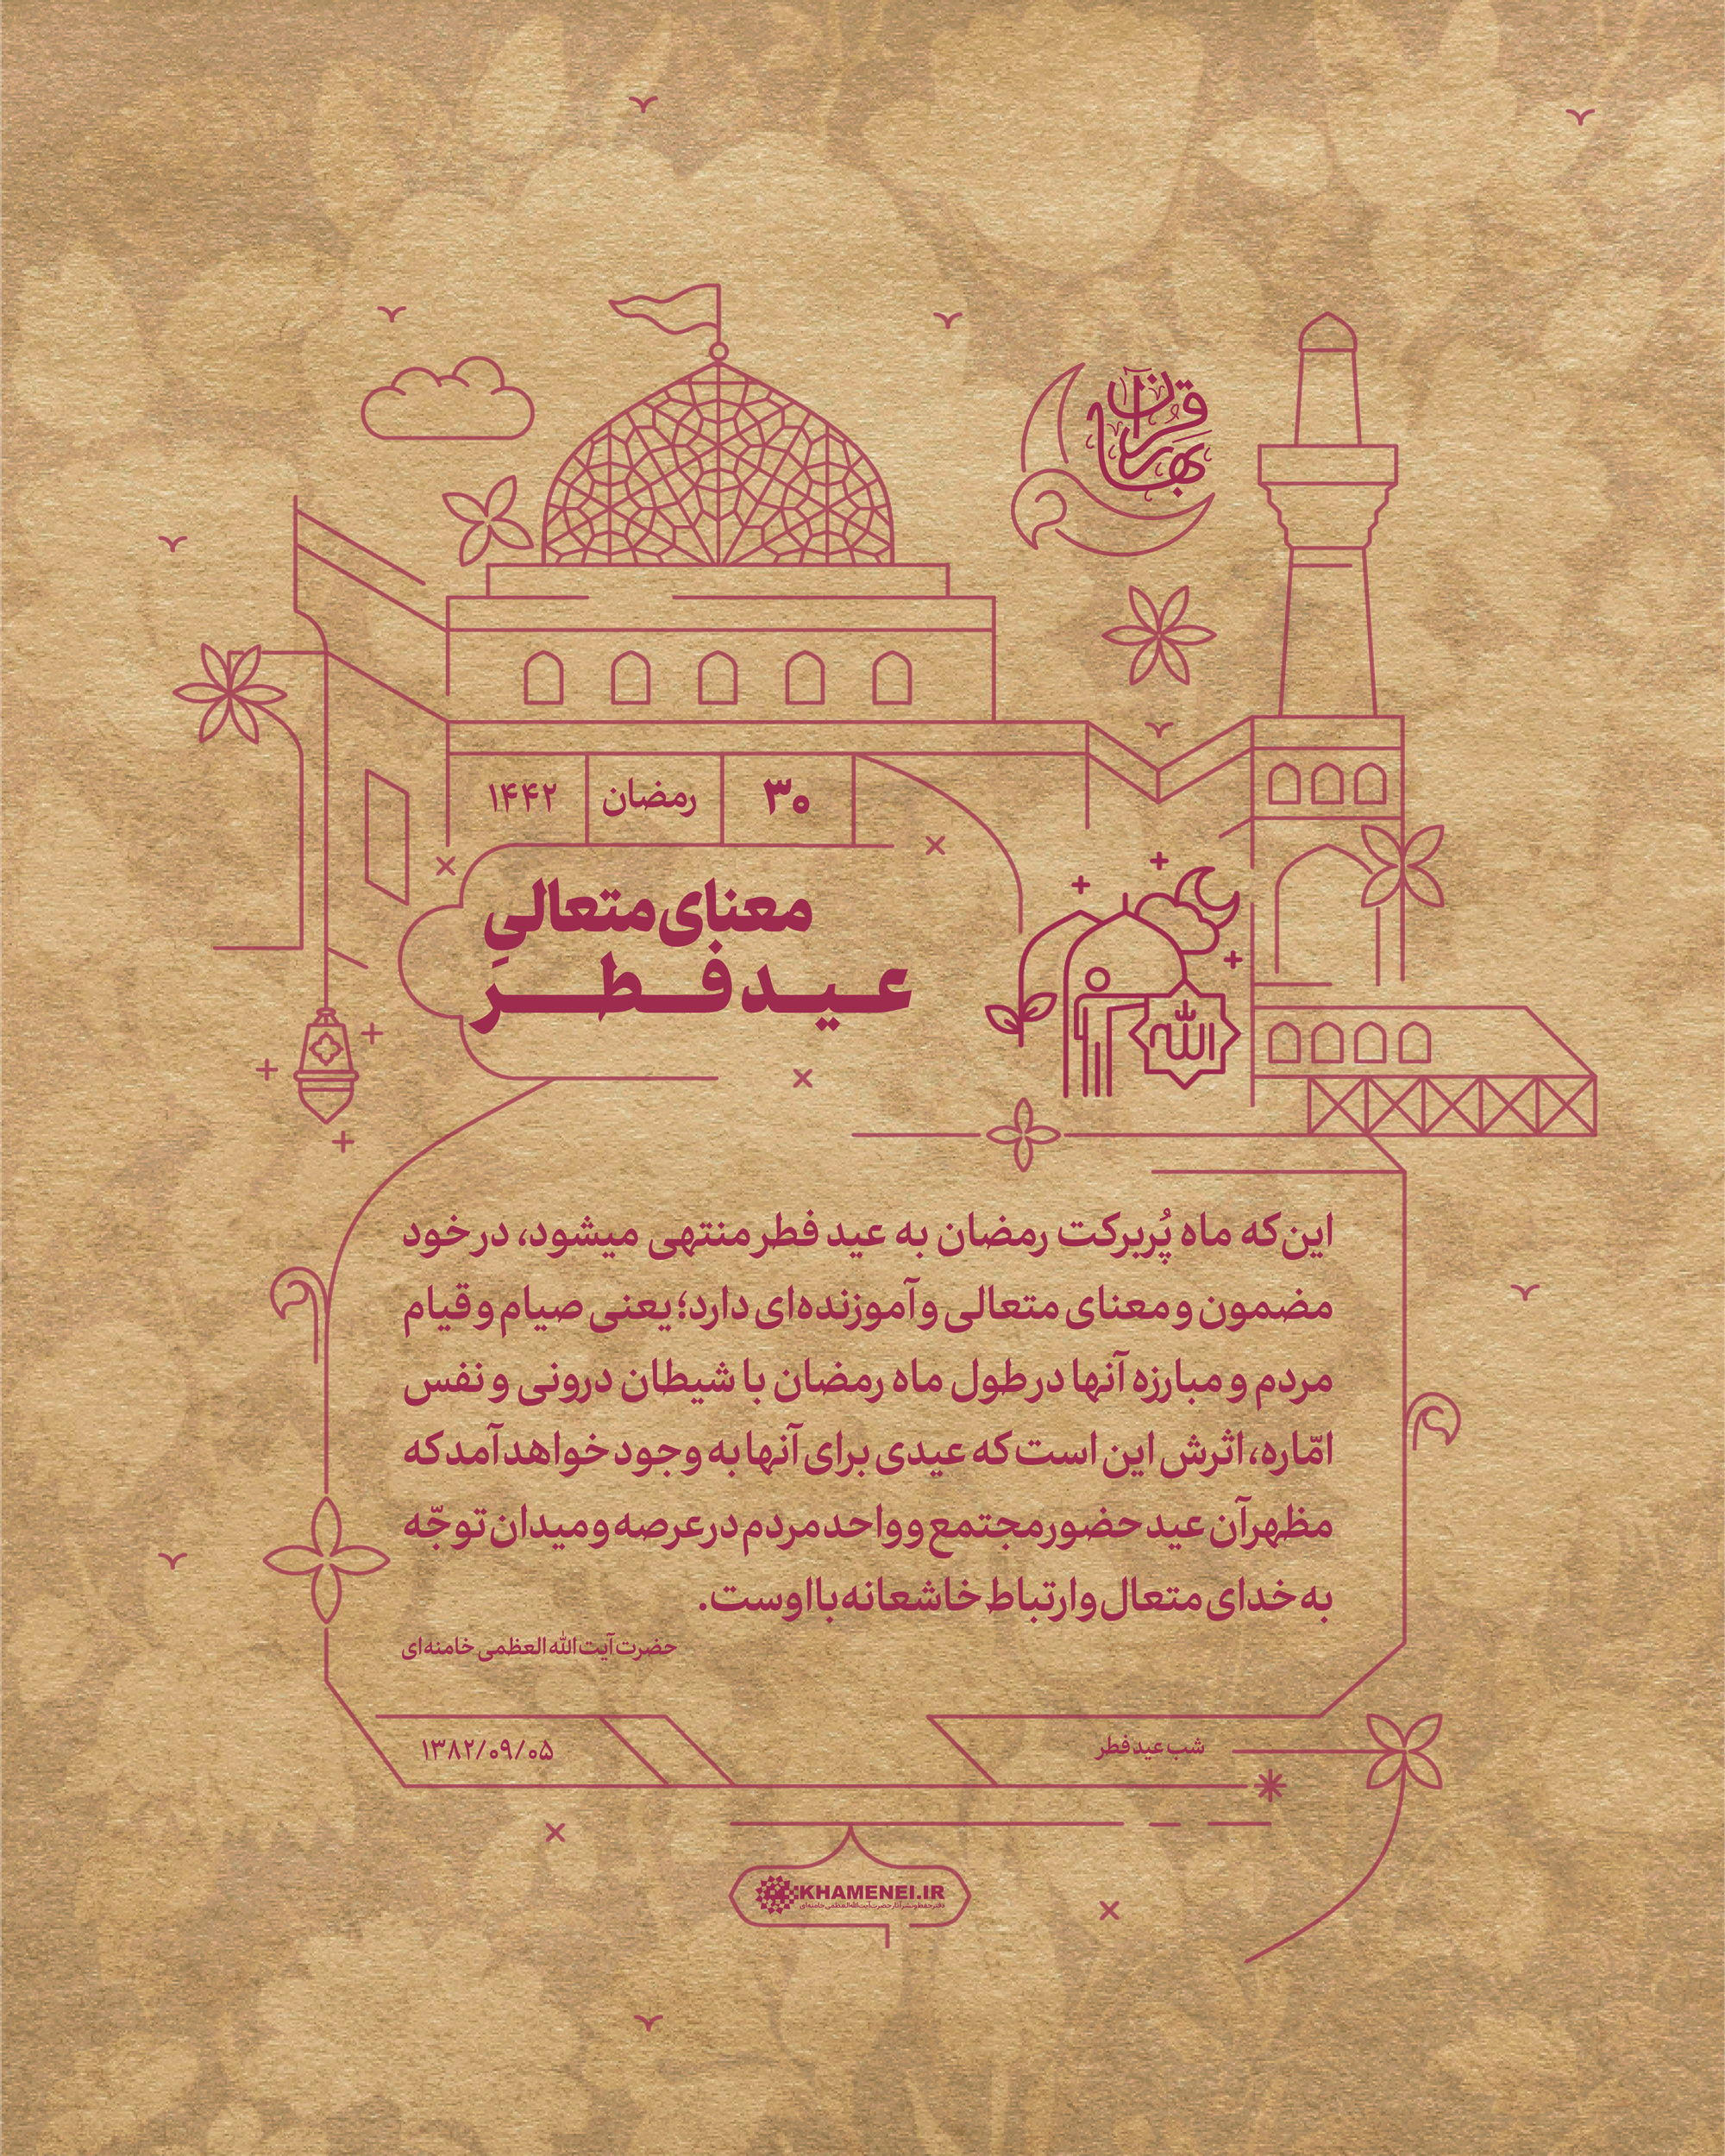 بهار قرآن
۳۰ رمضان ۱۴۴۲
معنای متعالیِ
عید فطر
الله
این‌که ماه پُربرکت رمضان به عید فطر منتهی میشود، در خود
مضمون و معنای متعالی و آموزنده‌ای دارد؛ یعنی صیام و قیام
مردم و مبارزه آنها در طول ماه رمضان با شیطان درونی و نفس
امّاره، اثرش این است که عیدی برای آنها به وجود خواهد آمد که
مظهر آن عید حضور مجتمع و واحد مردم در عرصه و میدان توجّه
به خدای متعال و ارتباط خاشعانه با اوست.
حضرت آیت‌الله العظمی خامنه‌ای
شب عید فطر
۱۳۸۲/۰۹/۰۵
KHAMENEI.IR
دفتر حفظ و نشر آثار حضرت آیت‌الله العظمی خامنه‌ای